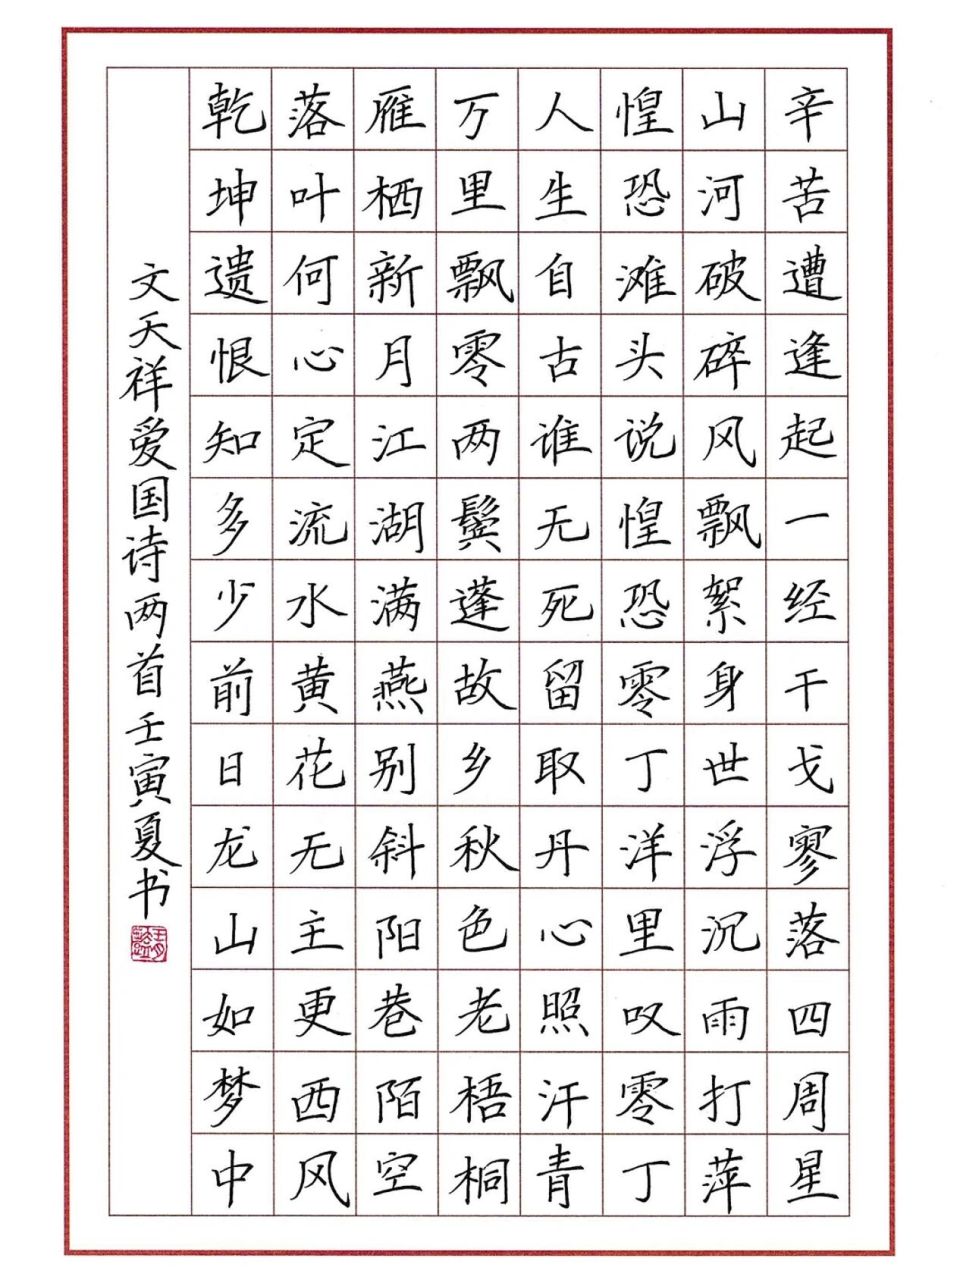 辛苦遭逢起一经干戈寥落四周星
山河破碎风飘絮身世浮沉雨打萍
惶恐滩头说惶恐零丁洋里叹零丁
人生自古谁无死留取丹心照汗青
万里飘零两鬓蓬故乡秋色老梧桐
雁栖新月江湖满燕别斜阳巷陌空
落叶何心定流水黄花无主更西风
乾坤遗恨知多少前日龙山如梦中
文天祥爱国诗两首壬寅夏书